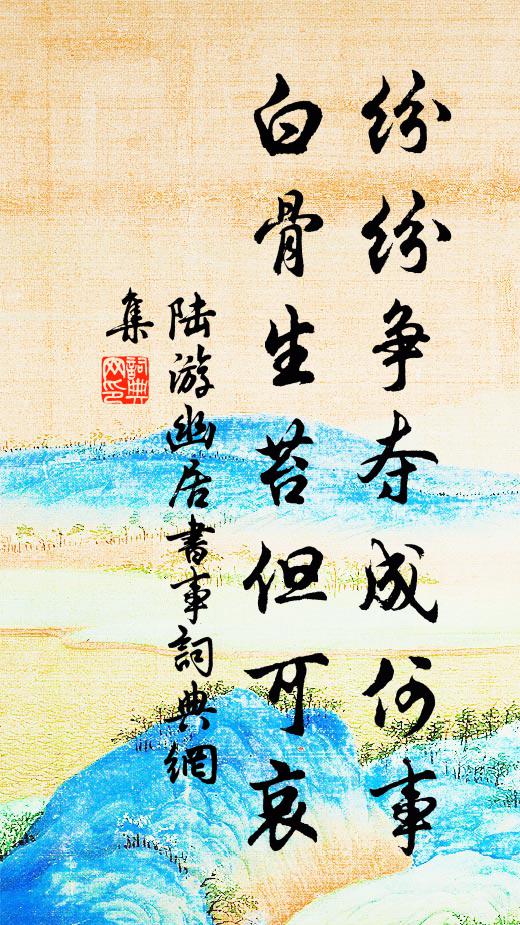 纷纷争夺成何事
白骨生苔但可哀
陆游幽居书事詞典網
集
詞典网印